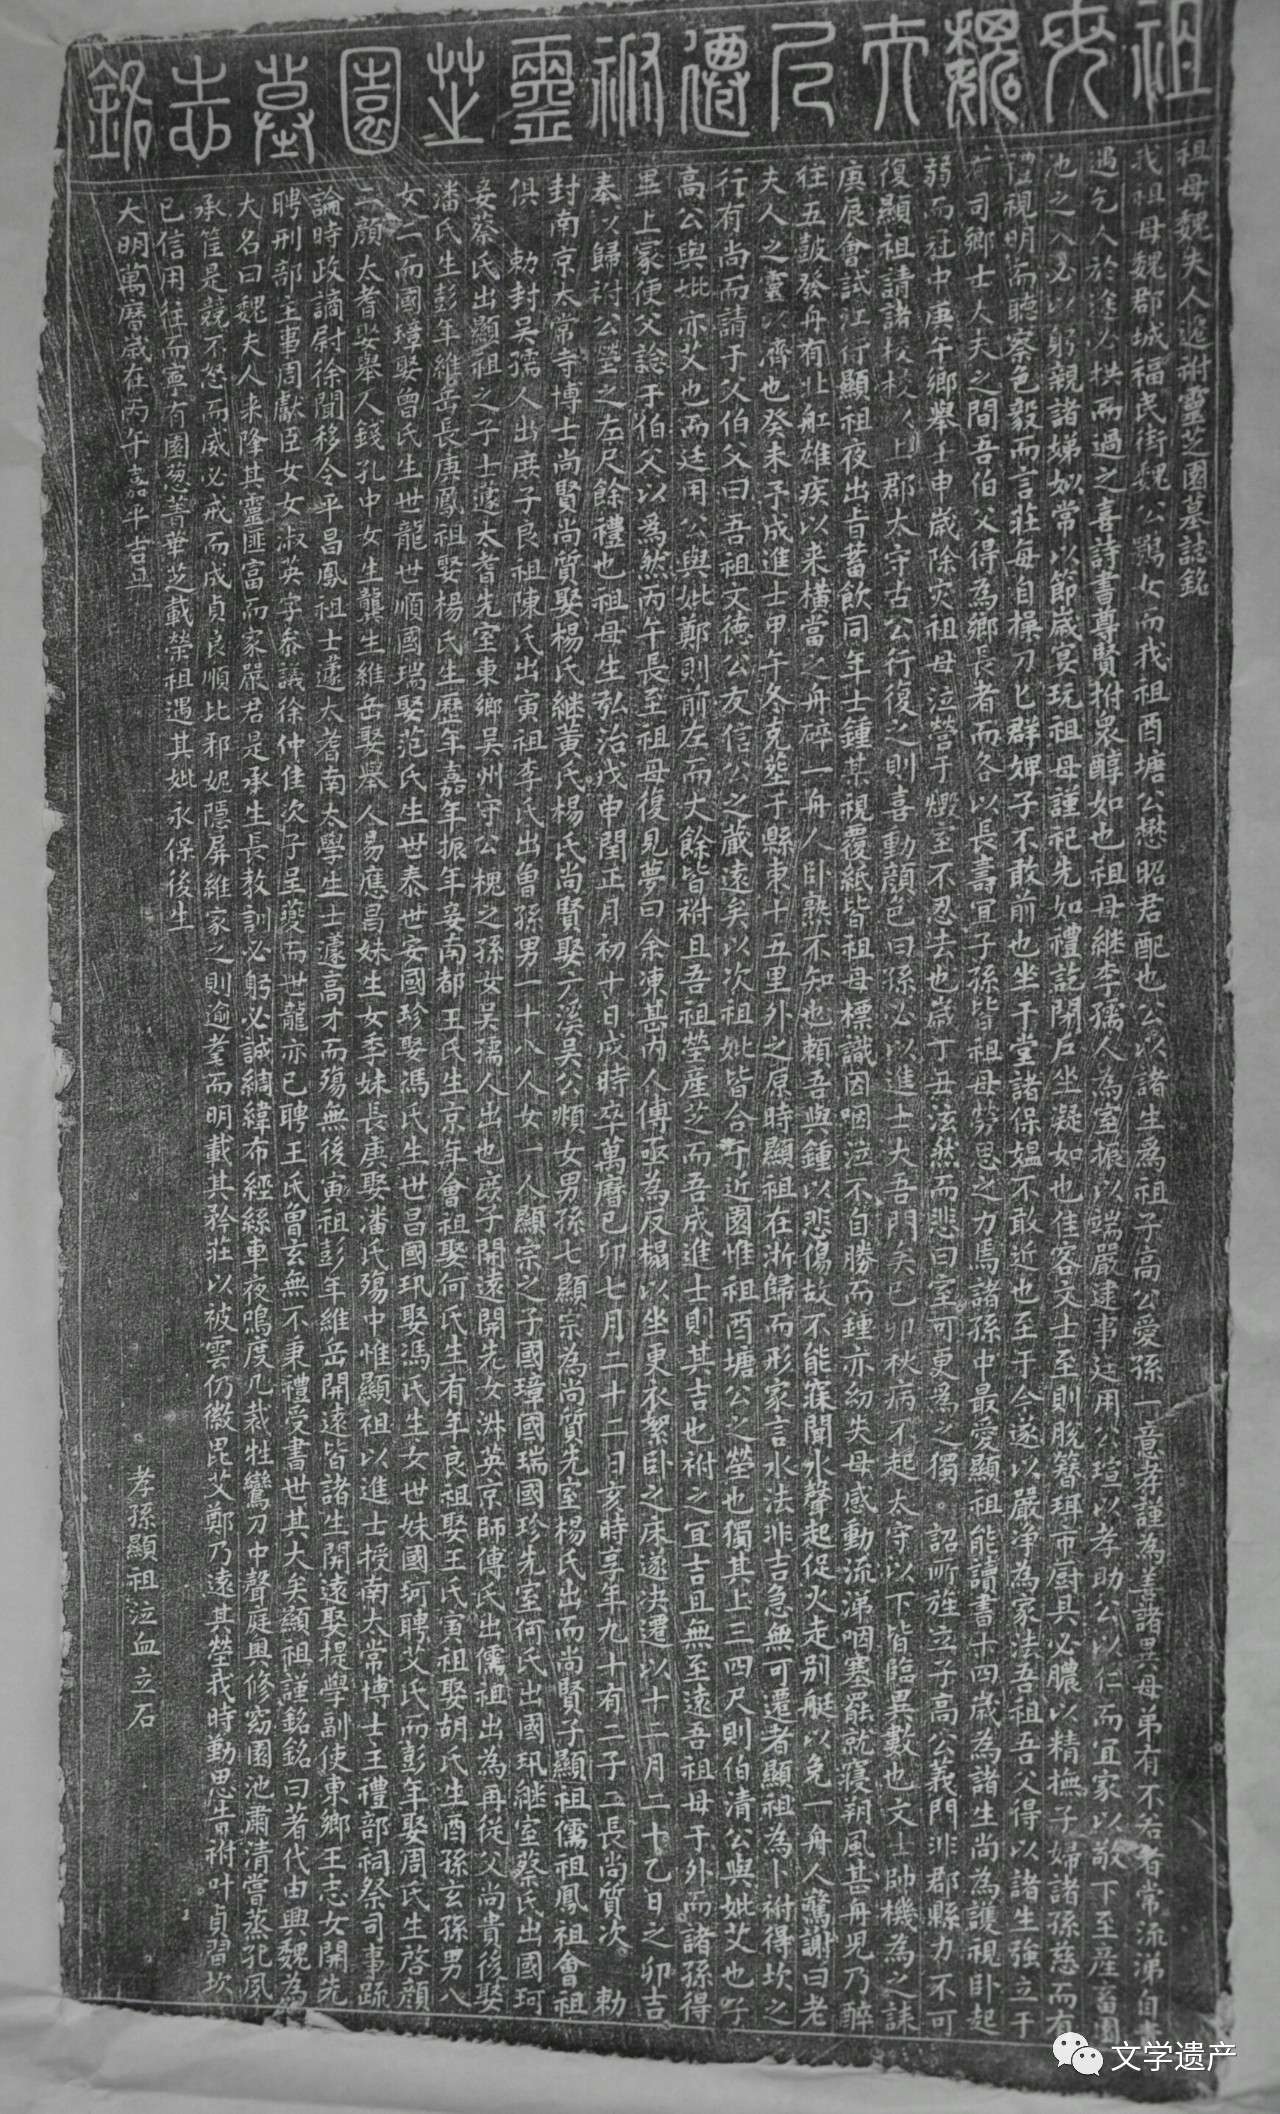 祖母魏夫人遷祔靈芝園墓志銘
祖母魏夫人遷祔靈芝園墓誌銘
我祖母魏郡城福民街魏公鸚女而我祖酉塘公懋昭君配也公以諸生為祖子高公愛孫一意孝謹為善諸異母弟有不若者常流涕自
遇乞人於途必拱而過之喜詩書尊賢拊衆醇如也祖母繼李孺人為室振以端嚴建事廷用公瑄以孝助公以仁而宜家以敬下至產畜園
池之入必以躬親諸娣姒常以節歲宴玩祖母謹祀先如禮訖閉戶坐凝如也佳客文士至則脫簪珥市厨具必膿以精撫子婦諸孫慈而有
視明而聽察色毅而言莊每自操刀匕群婢子不敢前也坐于堂諸保媼不敢近也至于今遂以嚴淨為家法吾祖吾父得以諸生強立于
有司鄉士大夫之間吾伯父得為鄉長者而各以長壽宜子孫皆祖母勞思之力焉諸孫中最愛顯祖能讀書十四歲為諸生尚為護視卧起
弱而冠中庚午鄉舉壬申歲除灾祖母泣營于燬室不忍去也歲丁丑泫然而悲曰室可更為之獨 詔所旌立子高公義門非郡縣力不可
復顯祖請諸校校以上郡太守古公行復之則喜動顏色曰孫必以進士大吾門矣已卯秋病不起太守以下皆臨異數也文士帥機為之誄
庚辰會試江行顯祖夜出旨蓄飲同年士鍾某視覆紙皆祖母標識因咽泣不自勝而鍾亦幼失母感動流涕咽塞罷就寢朔風甚舟兒乃醉
往五鼓發舟有北舡雄疾以来橫當之舟碎一舟人卧熟不知也賴吾與鍾以悲傷故不能寐聞水聲起促火走別艇以免一舟人驚謝曰老
夫人之靈以濟也癸未予成進士甲午冬克塟于縣東十五里外之原時顯祖在浙歸而形家言水法非吉急無可遷者顯祖為卜祔得坎之
行有尚而請于父伯父曰吾祖文德公友信公之蔵遠矣以次祖妣皆合于近園惟祖酉塘公之塋也獨其上三四尺則伯清公與妣艾也子
高公與妣亦艾也而廷用公與妣鄭則前左而丈餘皆祔且吾祖塋產芝而吾成進士則其吉也祔之宜吉且無至遠吾祖母于外而諸孫得
里上冢便父諗于伯父以為然丙午長至祖母復見夢曰余凍甚丙人傳亟為反榻以坐更衣絮卧之床遂決遷以十二月二十乙日之卯吉
奉以歸祔公塋之左尺餘禮也祖母生弘治戊申閏正月初十日戌時卒萬曆已卯七月二十二日亥時享年九十有二子二長尚質次 勅
封南京太常寺博士尚賢尚質娶楊氏繼黃氏楊氏尚賢娶六溪吳公㵋女男孫七顯宗為尚質先室楊氏出而尚賢子顯祖儒祖鳳祖會祖
俱 勅封吳孺人出庶子良祖陳氏出寅祖李氏出曾孫男一十八人女一人顯宗之子國璋國瑞國珍先室何氏出國㺬繼室蔡氏出國珂
妾蔡氏出顯祖之子士蘧大耆先室東鄉吳州守公槐之孫女吳孺人出也庶子開遠開先女淑英京師傅氏出儒祖出為再從父尚貴後娶
潘氏生彭年維岳長庚鳳祖娶楊氏生歷年嘉年振年妾南都王氏生京年會祖娶何氏生有年良祖娶王氏寅祖娶胡氏生酉孫玄孫男八
女一而國璋娶曾氏生世龍世順國瑞娶范氏生世泰世安國珍娶馮氏生世昌國㺬娶馮氏生女世妹國珂聘艾氏而彭年娶周氏生啓顏
二顏太耆娶舉人錢孔中女生龔生維岳娶舉人易應昌妹生女季妹長庚娶潘氏殤中惟顯祖以進士授南太常博士主禮部祠祭司事䟽
論時政謫尉徐聞移令平昌鳳祖士蘧大耆南太學生士蘧高才而殤無後寅祖彭年維岳開遠皆諸生開遠娶提學副使東鄉王志女開先
聘刑部主事周獻臣女女淑英字叅議徐仲佳次子呈慶而世龍亦已聘王氏曾玄無不秉禮受書世其大矣顯祖謹銘銘曰著代由興魏為
大名曰魏夫人来降其靈匪富而家嚴君是承生長教訓必躬必誠綢緯布經絲車夜鳴度几裁牲鸞刀中聲庭奧修窈園池肅清嘗蒸祀夙
承筐是競不怒而威必戒而成貞良順比邪妮隱屏維家之則逾耄而明載其矜莊以被雲仍微毘艾鄭乃遠其塋我時勤思告祔叶貞習坎
已信用往而寧有園葱菁華芝載榮祖遇其妣永保後生
大明萬曆歲在丙午嘉平吉旦 孝孫顯祖泣血立石
文学遗产